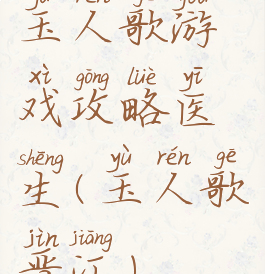 yù rén gē yóu
玉人歌游
xì gōng lüè yī
戏攻略医
shēng yù rén gē
生(玉人歌
jìn jiāng
晋江)